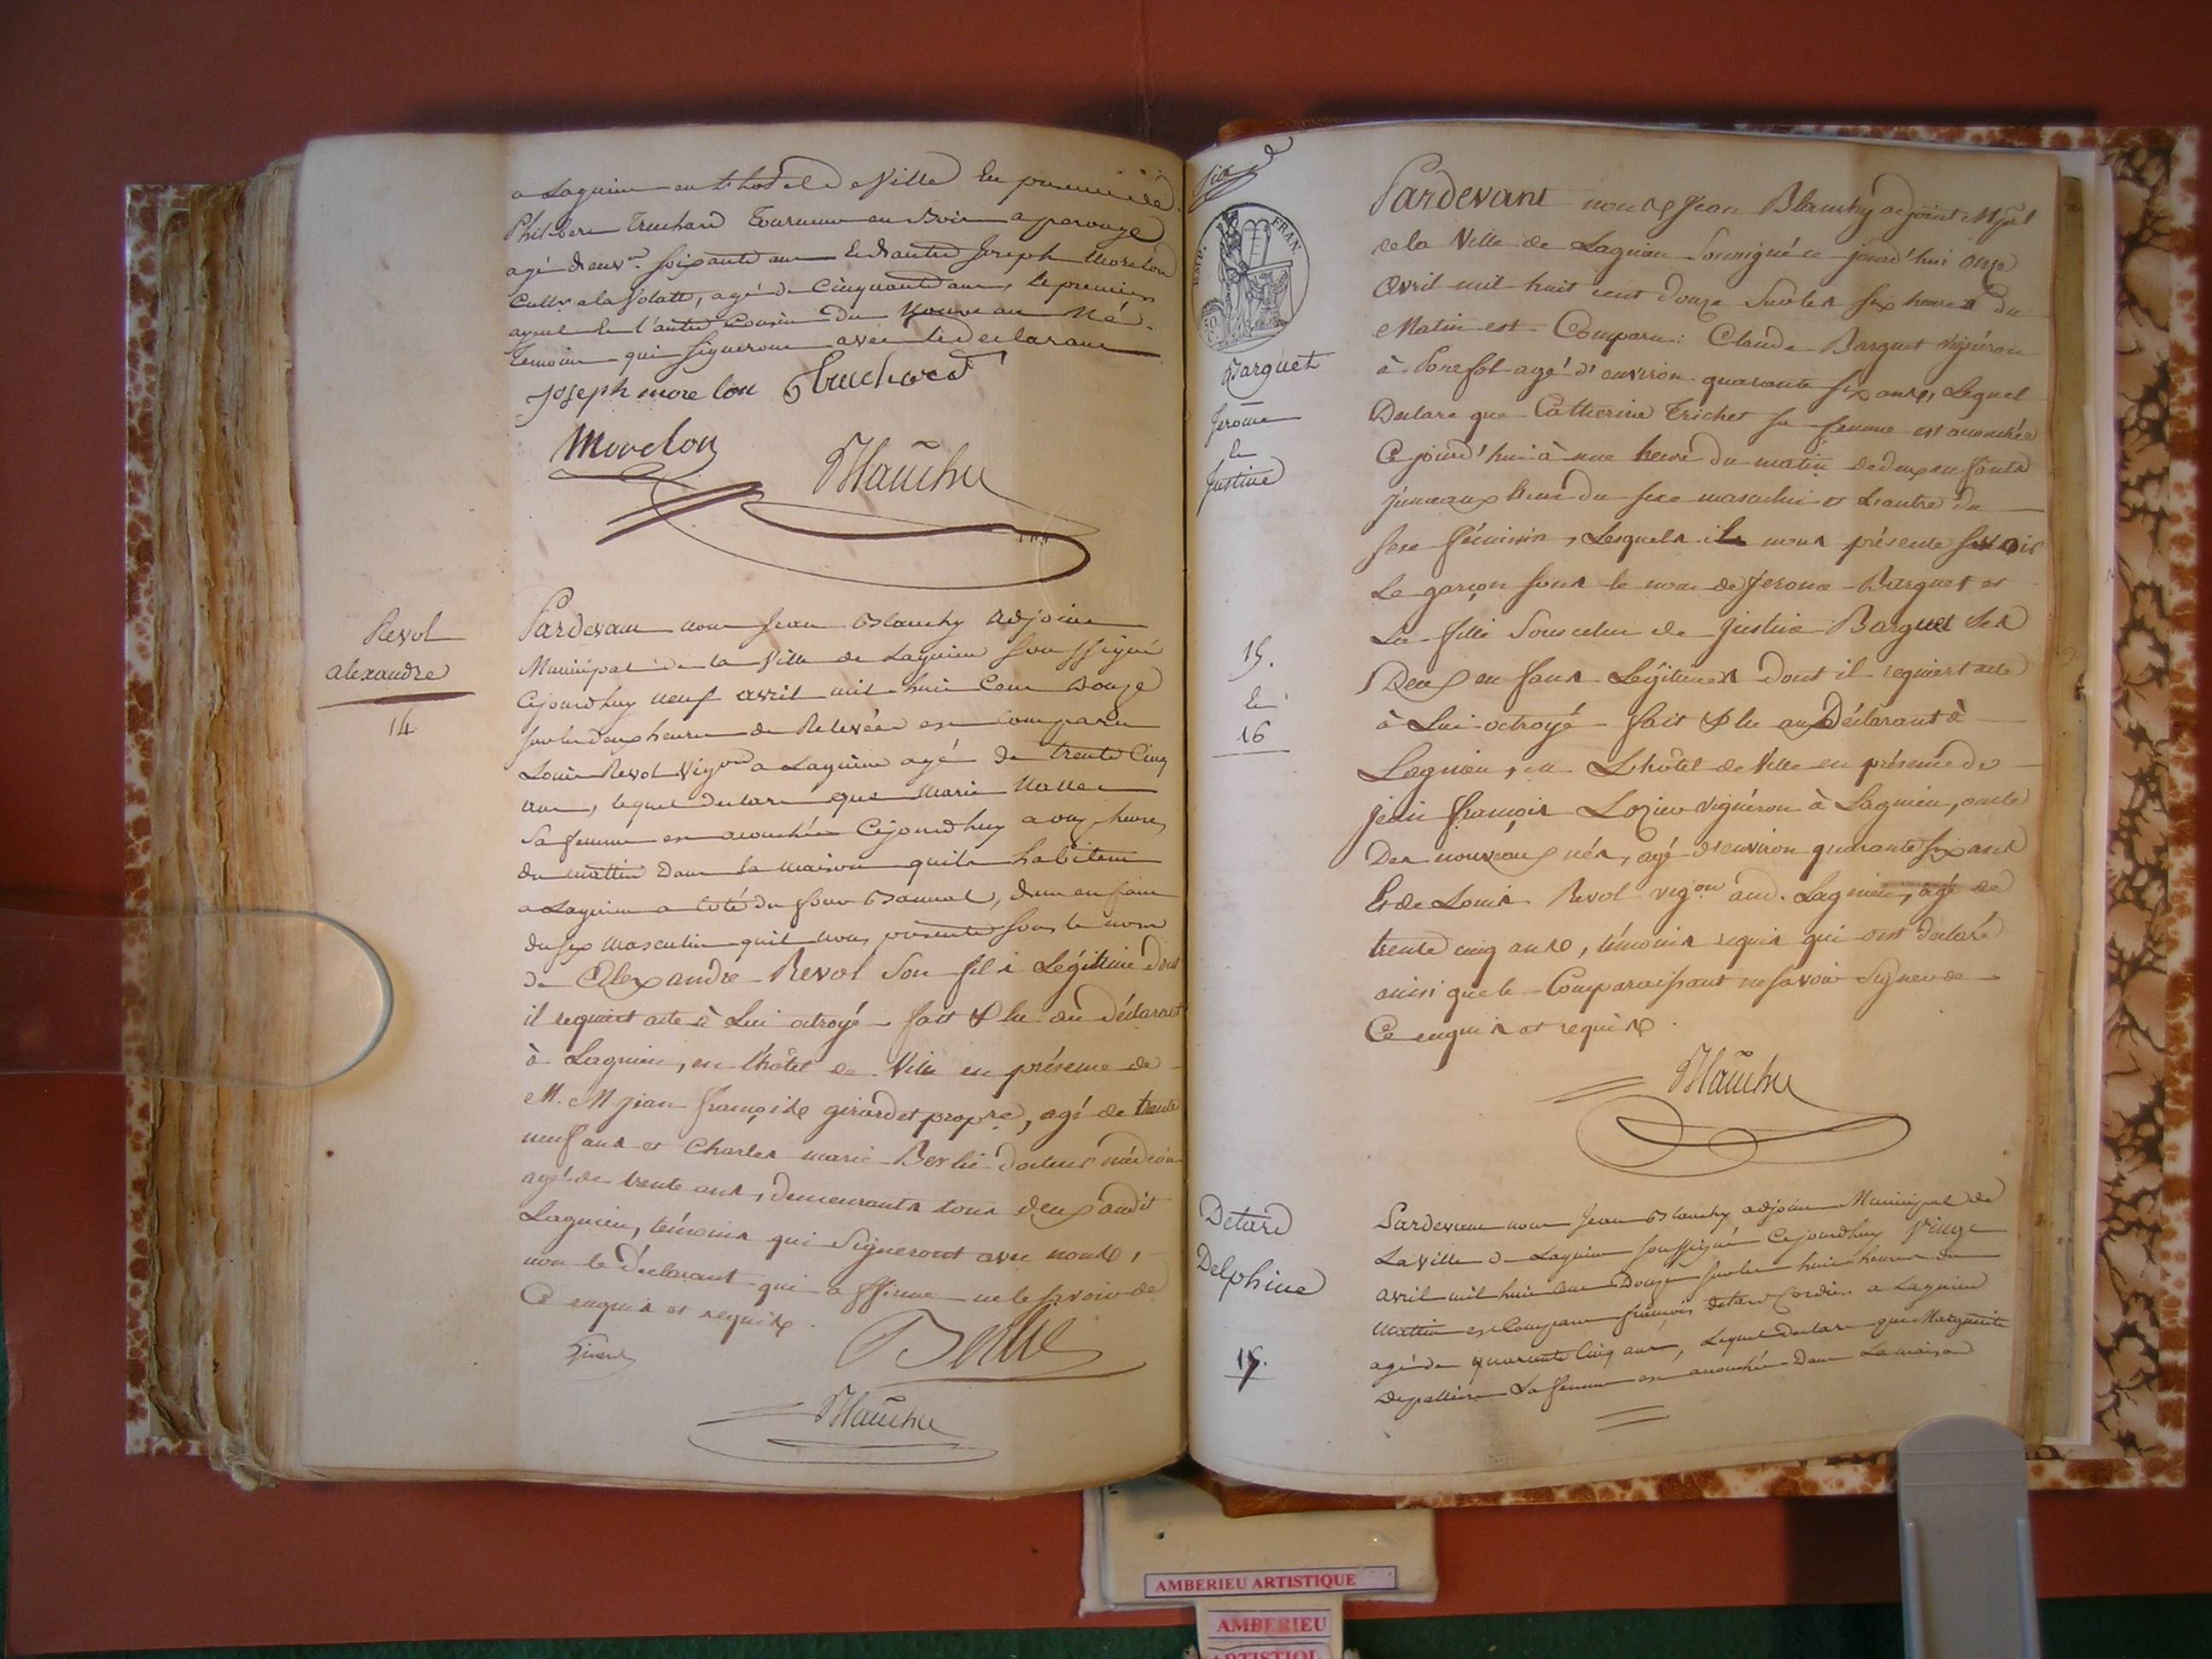 a Lagnieu en l'hotel de Ville En presence de
Philibert Truchard Tourneur en Bois a perouge
agé d'env.on soixante ans Et d'autre Joseph Morelon
Cult.r a la , agé de Cinquante ans, le premier
ayeul Et l'autre Cousin du Nouveau Né.
Temoins qui signeront avec le declarant
Joseph morelon Truchard
Morelon Blanchy
Revol
alexandre
14
Pardevant nous Jean Blanchy Adjoint
Municipal de la Ville de Lagnieu soussigné
Cejourdhuy neuf avril mil huit Cent Douze
sur les deux heures de Relevée est comparu
Louis Revol Vig.on a Lagnieu agé de trente Cinq
ans, lequel declare que Marie
Sa femme est acouchée Cejourdhuy a onze heures
du mattin Dans la Maison quils habitent
a Lagnieu a coté du four Bannal, d'un enfant
du sex Masculin quil nous présente sous le nom
de Alexandre Revol Son fils Légitime dont
il requiert acte à Lui octroyé fait & lu au Déclarant
à Lagnieu, en l'hôtel de Ville en présence de
M. M. jean françois girardet prop.re, agé de trente
neuf ans et Charles marie Berlié docteur médecin
agé de trente ans, demeurants tous deux audit
Lagnieu, témoins qui Signeront avec nous,
non le Déclarant qui a affirmé ne le savoir de
Ce enquis et requis.
Berlié
Blanchy
EMP. FRAN.
Barguet
Jerôme
et
Justine
15.
et
16
Pardevant nous Jean Blanchy adjoint M.pal
de la Ville de Lagnieu Soussigné ce jourd'hui onze
Avril mil huit cent douze Sur les six heures du
Matin est Comparu: Claude Barguet vignéron
à Ponefol agé d'environ quarante six ans, Lequel
Déclare que Catherine Trichet sa femme est acouchée
Ce jourd'hui à une heure du matin de deux enfants
jumeaux l'un du sexe masculin et L'autre du
sexe féminin, Lesquels il nous présente savoir
Le garçon sous le nom de Jerome Barguet et
La fille Sous celui de Justine Barguet ses
Deux enfans Légitimes Dont il requiert acte
à Lui octroyé fait & lu au Déclarant à
Lagnieu, en L'hôtel de Ville en présence de
jean françois Lozieu vignéron à Lagnieu, oncle
Des nouveaux nés, agé d'environ quarante six ans
Et de Louis Revol vig.on aud. Lagnieu, agé de
trente cinq ans, témoins requis qui ont déclaré
ainsi que le Comparaissant ne savoir Signer de
Ce enquis et requis.
Blanchy
Detard
Delphine
Pardevant nous Jean Blanchy adjoint Municipal de
La ville de Lagnieu soussigné Cejourdhuy Vingt
avril mil huit Cent Douze sur les huit heures du
Mattin est Comparu françois Detard Cordier a Lagnieu
agé de quarante Cinq ans, Lequel declare que Marguerite
Sa femme est acouchée Dans La maison
AMBERIEU ARTISTIQUE
AMBERIEU